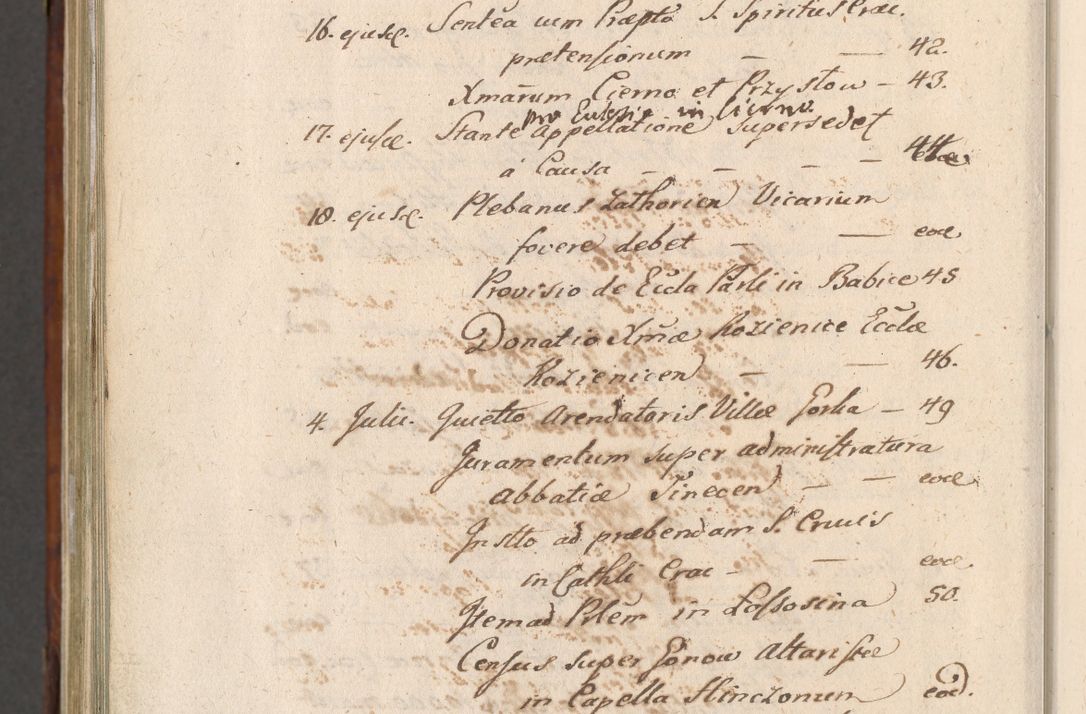 16. ejusd. Sentea cum Præpto S. Spiritus Crac.
prætensionum — — 42.
Xmarum Cierno et Przystow — 43.
pro Ecclesia in Cierno.
17. ejusd. Stante appellatione supersedet
á Causa — — — 44
18. ejusd. Plebanus Zathorien Vicarium
fovere debet — — eod.
Provisio de Eccla Parli in Babice 45
Donatio Xmæ Kozienice Ecclæ
Kozienicen — — 46.
4. Julii. Quietto Arendatoris Villæ Gorka — 49
Juramentum super administratura
Abbatiæ Tinecen — — eod.
Instto ad præbendam S. Crucis
in Cathli Crac — — eod.
Item ad Prlem in Lossosina 50.
Census super Gorow Altaristæ
in Capella Hinczonum eod.